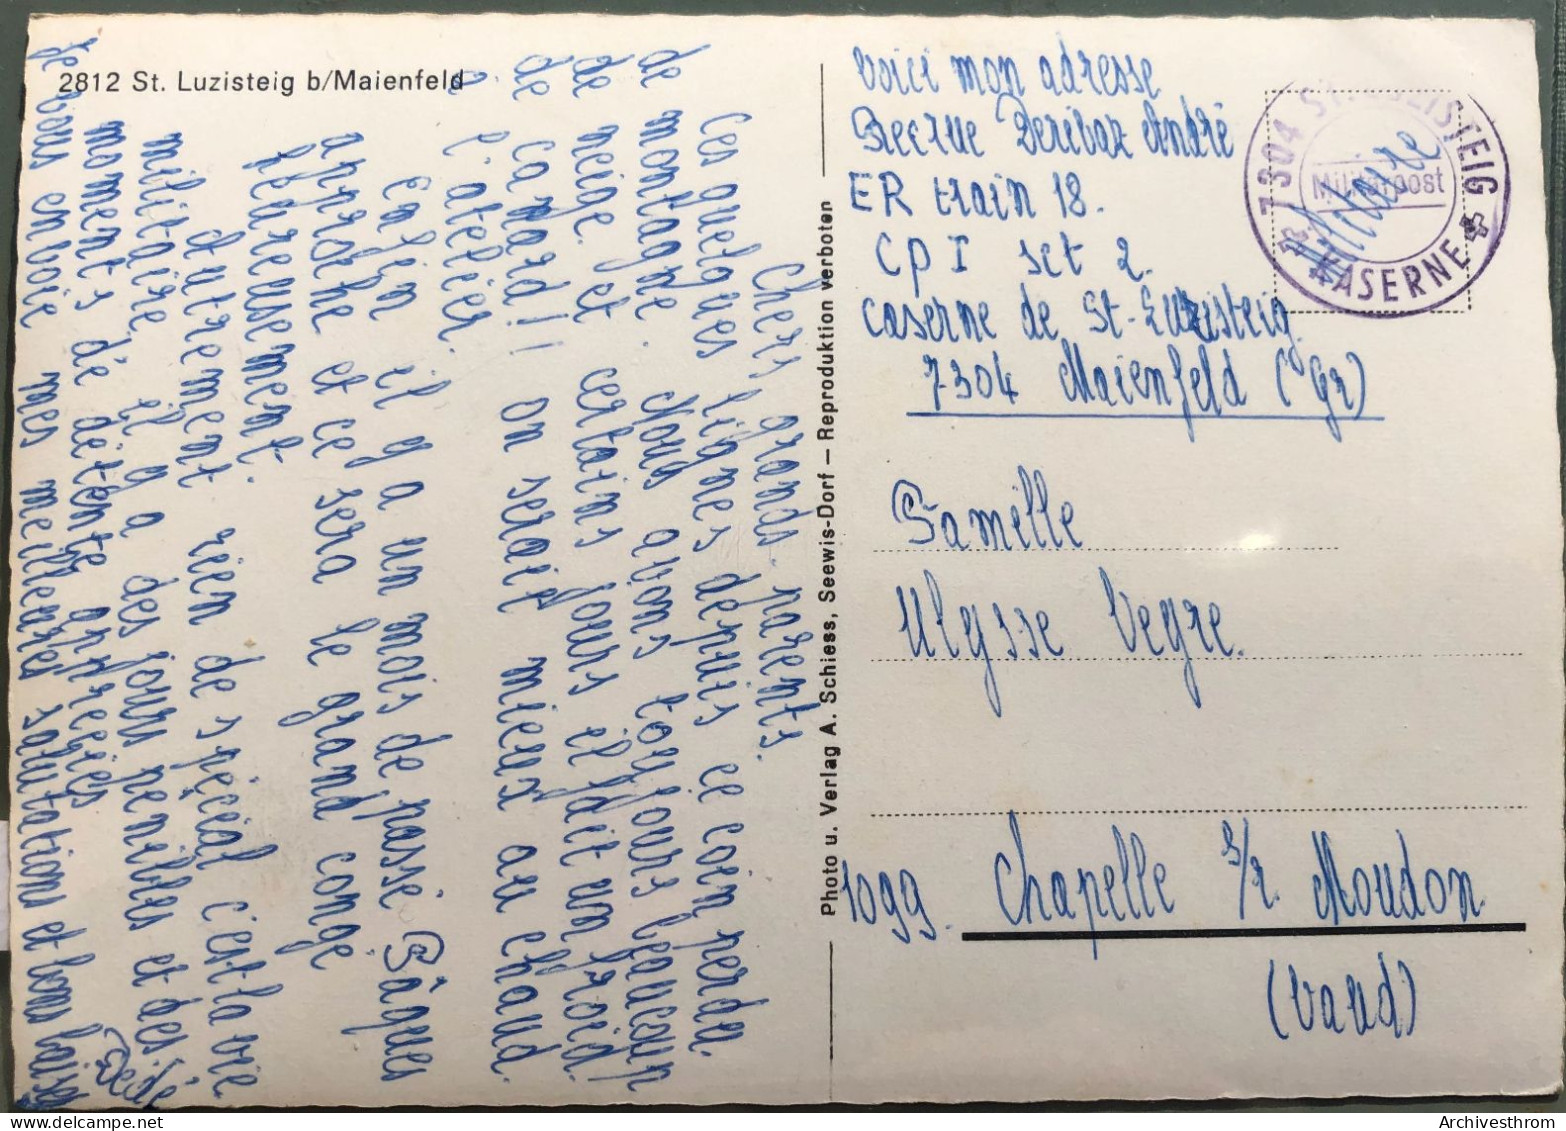 2812 St. Luzisteig b/Maienfeld
Chers grands-parents.
Ces quelques lignes depuis ce coin perdu
de montagne. Nous avons toujours beaucoup
de neige et certains jours il fait un froid
de canard! on serait mieux au chaud
à l'atelier.
Enfin il y a un mois de passé Pâques
approche et ce sera le grand congé
heureusement.
Autrement rien de spécial c'est la vie
militaire, il y a des jours penibles et des
moments de détente appreciés
Je vous envoie mes meilleures salutations et bons baisers
Dédé
Photo u. Verlag A. Schiess, Seewis-Dorf – Reproduktion verboten
Voici mon adresse
Recrue Deribaz André
ER train 18.
Cp I sct 2.
Caserne de St-Luzisteig
7304 Maienfeld (Gr)
7304 ST. LUZISTEIG
Militärpost
KASERNE
Militaire
Famille
Ulysse Vegre.
1099. Chapelle s/r Moudon
(Vaud)
Archivesthrom